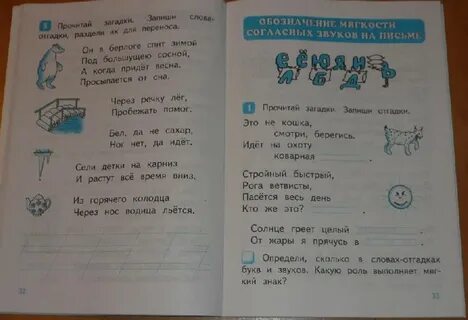 5 Прочитай загадки. Запиши слова-
отгадки, раздели их для переноса.
Он в берлоге спит зимой
Под большущею сосной,
А когда придёт весна,
Просыпается от сна.
Через речку лёг,
Пробежать помог.
Бел, да не сахар,
Ног нет, да идёт.
Сели детки на карниз
И растут всё время вниз.
Из горячего колодца
Через нос водица льётся.
32
ОБОЗНАЧЕНИЕ МЯГКОСТИ
СОГЛАСНЫХ ЗВУКОВ НА ПИСЬМЕ
Е Ё Ю Я И Ь
Л Б Д
1 Прочитай загадки. Запиши отгадки.
Это не кошка,
смотри, берегись.
Идёт на охоту
коварная
Стройный быстрый,
Рога ветвисты,
Пасётся весь день
Кто же это?
Солнце греет целый
От жары я прячусь в
Определи, сколько в словах-отгадках
букв и звуков. Какую роль выполняет мяг-
кий знак?
33